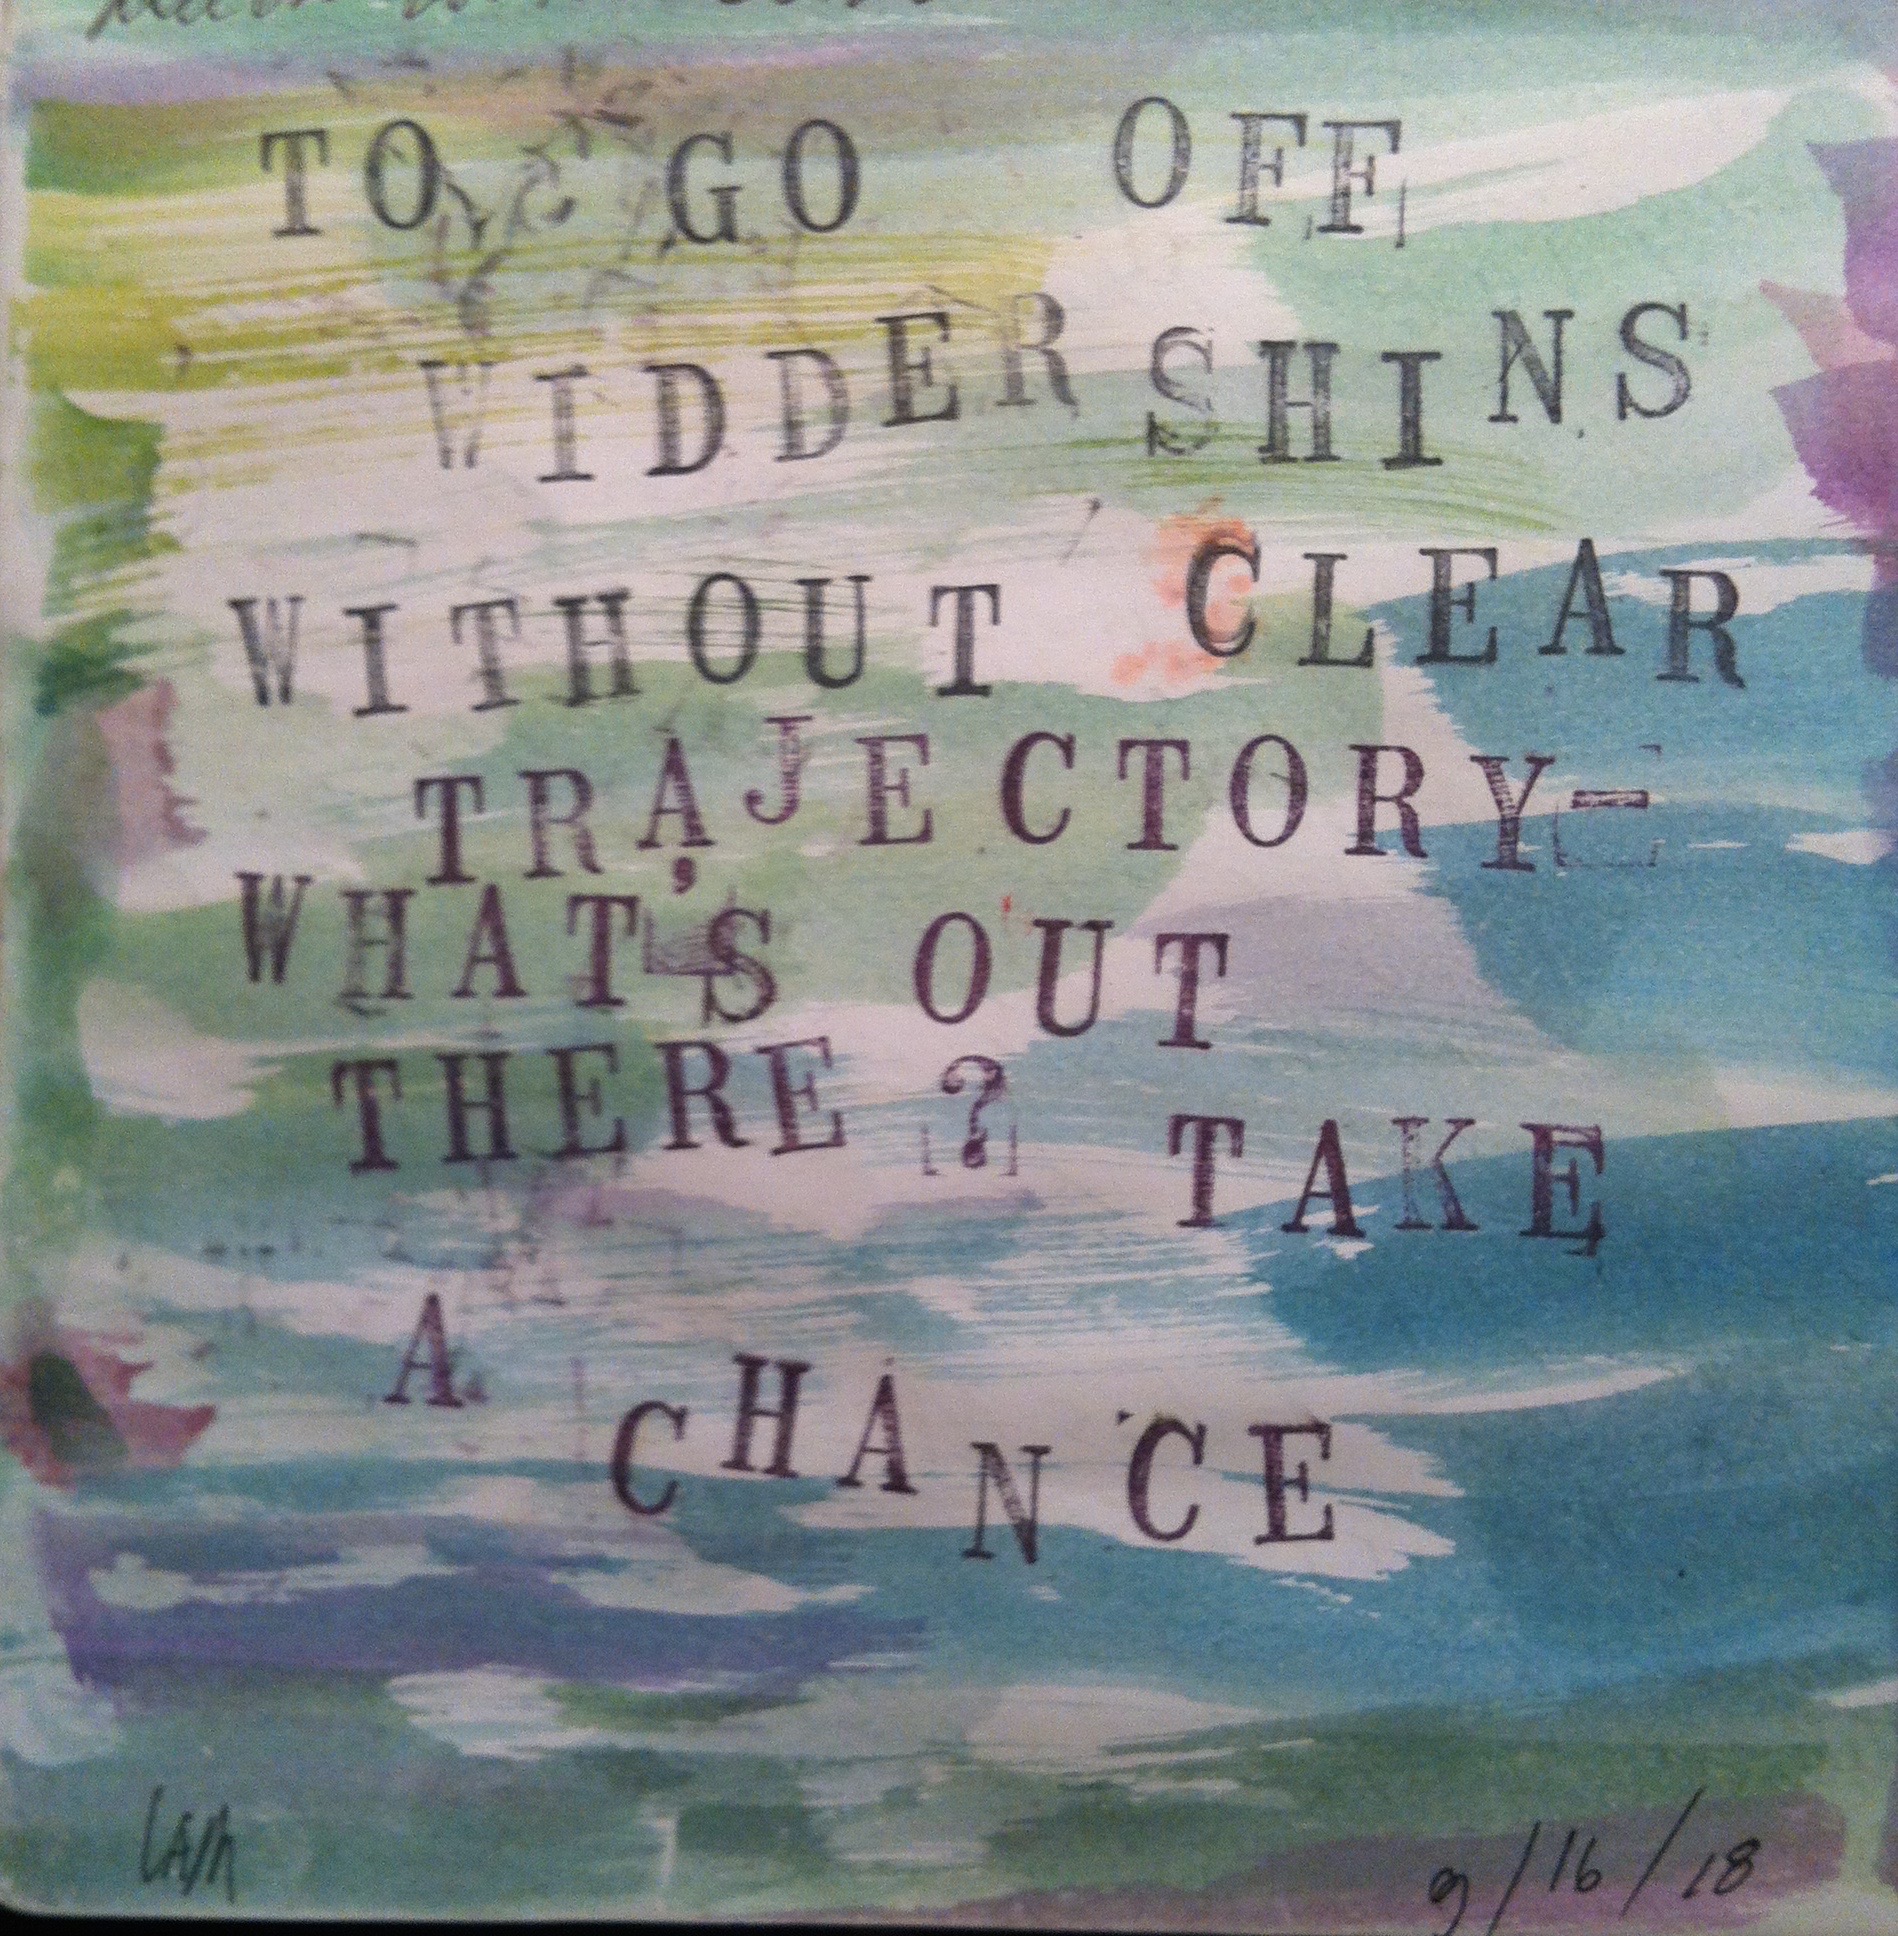 TO GO OFF
WIDDERSHINS
WITHOUT CLEAR
TRAJECTORY-
WHAT'S OUT
THERE? TAKE
A CHANCE
9/16/18